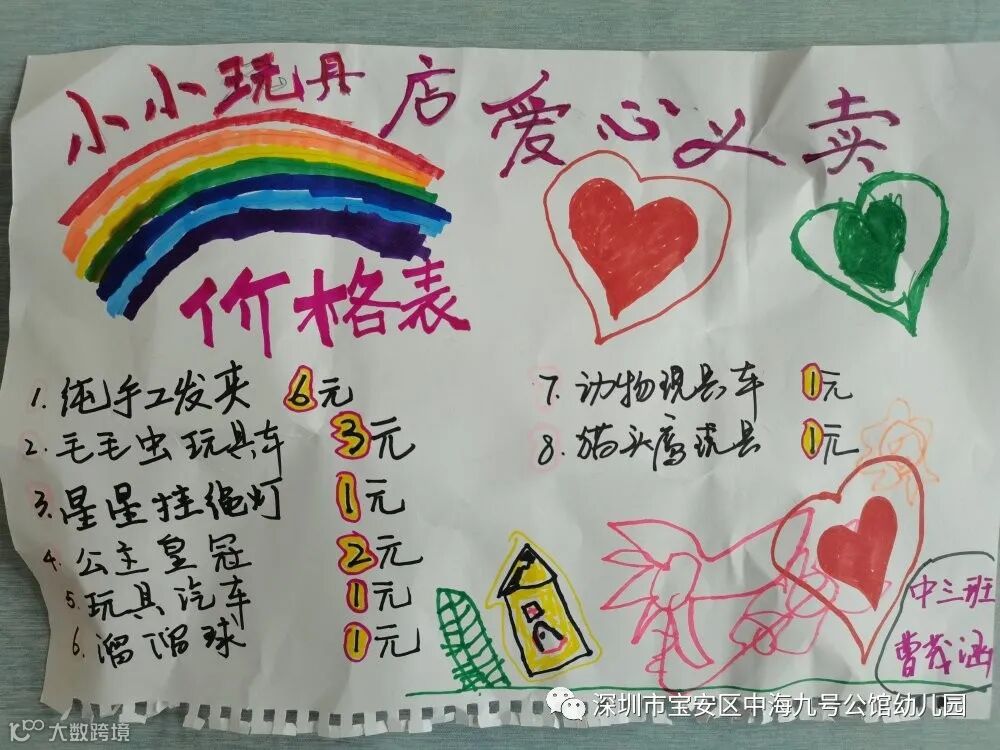 小小玩具店爱心义卖
价格表
1. 纯手工发夹 6元
2. 毛毛虫玩具车 3元
3. 星星挂绳灯 1元
4. 公主皇冠 2元
5. 玩具汽车 1元
6. 溜溜球 1元
7. 动物玩具车 1元
8. 猫头鹰玩具 1元
中三班
曹茂涵
深圳市宝安区中海九号公馆幼儿园
大数跨境